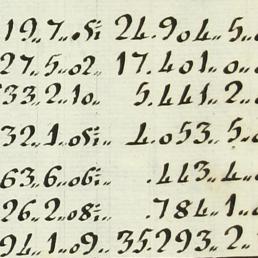 19,,7,,05 24.904,,5,,0
27,,5,,02 17.401,,0,,0
33,,2,,10 5.441,,2,,
32,,1,,05 4.053,,5,,0
63,,6,,06 .443,,4,,
26,,2,,08 .784,,1,,0
94,,1,,09 35.293,,2,,